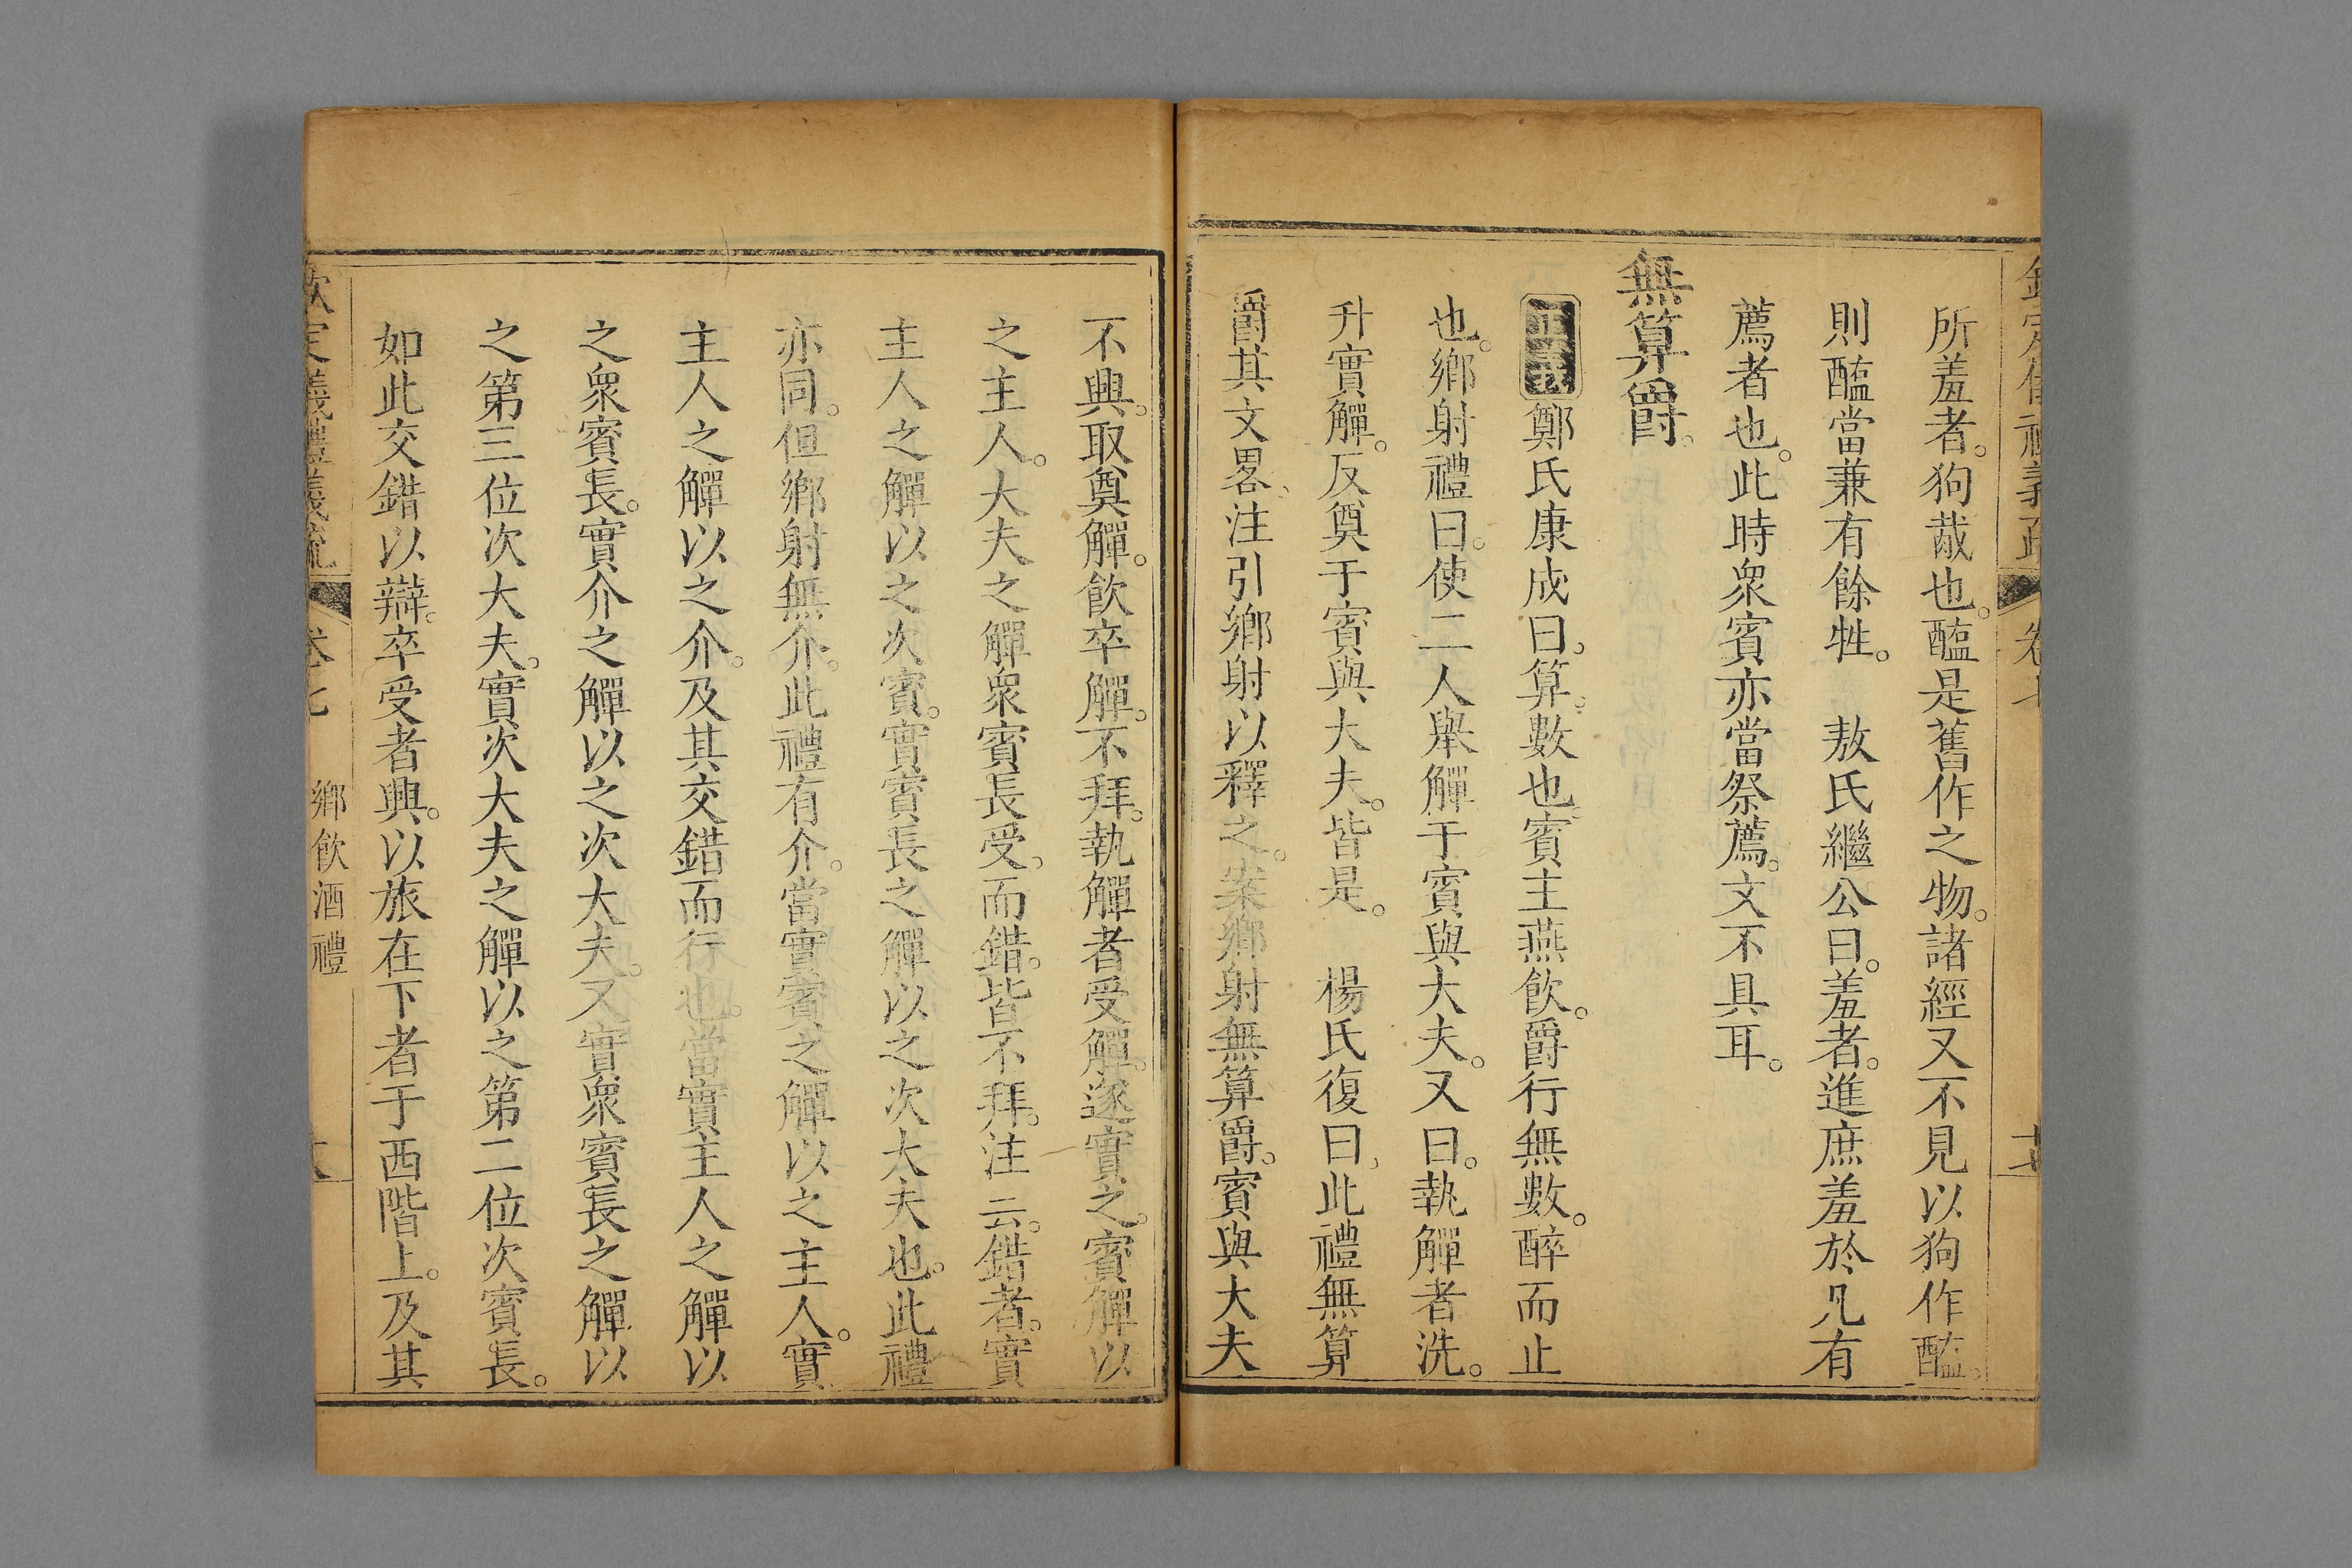 所羞者。狗胾也。醢是舊作之物。諸經又不見以狗作醢。
則醢當兼有餘牲。　敖氏繼公曰。羞者。進庶羞於凡有
薦者也。此時衆賓亦當祭薦。文不具耳。
無算爵。
正義鄭氏康成曰。算。數也。賓主燕飲。爵行無數。醉而止
也。鄉射禮曰。使二人舉觶于賓與大夫。又曰。執觶者洗。
升實觶。反奠于賓與大夫。皆是。　楊氏復曰、此禮無算
爵其文畧、注引鄉射以釋之。案鄉射無算爵。賓與大夫
不興。取奠觶。飲卒觶。不拜。執觶者受觶。遂實之。賓觶以
之主人。大夫之觶衆賓長受。而錯。皆不拜。注云。錯者。實
主人之觶。以之次賓。實賓長之觶以之次大夫也。此禮
亦同。但鄉射無介。此禮有介。當實賓之觶以之主人。實
主人之觶以之介。及其交錯而行也。當實主人之觶以
之衆賓長。實介之觶以之次大夫。又實衆賓長之觶以
之第三位次大夫。實次大夫之觶以之第二位次賓長。
如此交錯以辯。卒受者興。以旅在下者于西階上。及其
欽定儀禮義疏　卷七　鄉飲酒禮